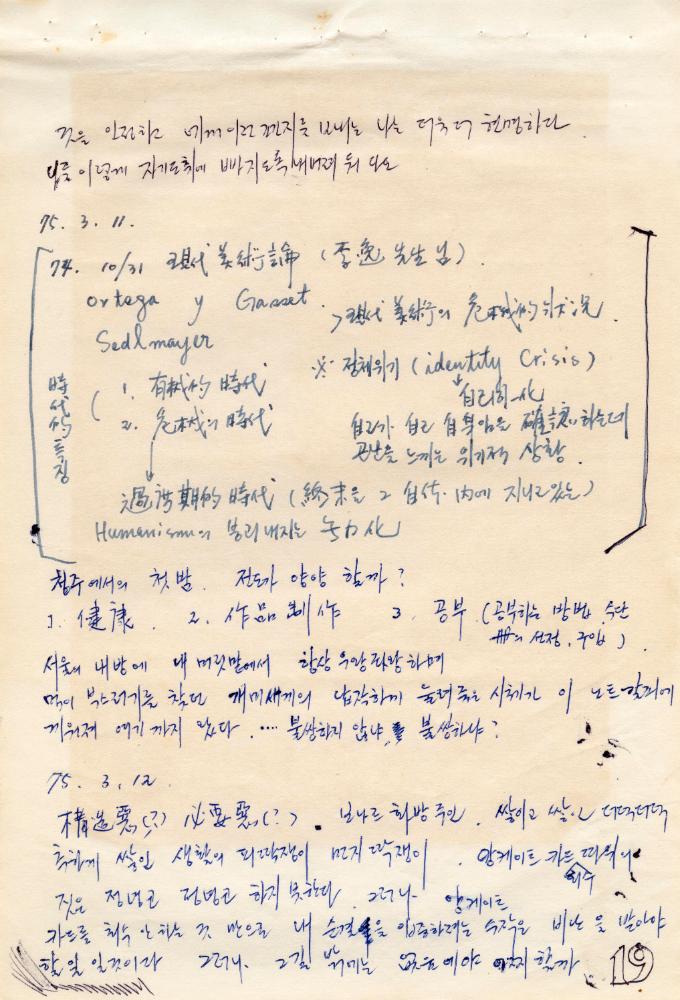 것은 안전하고 이런 편지를 보내는 나는 더욱 더 현명하다
이렇게 자기도취에 빠지도록 내버려 둬 다오
75. 3. 11.
74. 10/31 現代美術論 (李逸 先生님).
Ortega y Gasset.
> 現代美術의 危機的 狀況.
Sedlmayer
※ 정체위기 (identity Crisis)
自己同一化
時代的 특징
1. 有機的 時代
2. 危機의 時代
自己가 自己 自身임을 確認하는데
곤난을 느끼는 위기적 상황.
過渡期的 時代 (終末을 그 自体 內에 지니고 있는)
Humanism의 몰락 내지는 무력化
청주에서의 첫밤. 전도가 양양 할까?
1. 健康. 2. 作品 制作 3. 공부 (공부하는 방법, 수단
冊의 선정, 구입)
서울의 내방에 내 머릿맡에서 항상 우왕좌왕하며
먹이 부스러기를 찾던 개미새끼의 납작하게 눌려죽은 시체가 이 노트 갈피에
끼워져 여기까지 왔다. .... 불쌍하지 않냐 불쌍하냐?
75. 3. 12.
構造惡(?) 必要惡(?). 보나르 화방 주인. 쌓이고 쌓인 더덕더덕
추하게 쌓인 생활의 피딱쟁이 먼지 딱쟁이. 앙케이트 카드 따위니
짓은 정녕코 하지 못한다. 그러나 앙케이트
카드를 회수 안 하는 것 만으로 내 순결을 입증하려는 수작은 비난을 받아야
할 일 일것이다 그러나 그길 밖에는 없음에야 어찌 할까
19